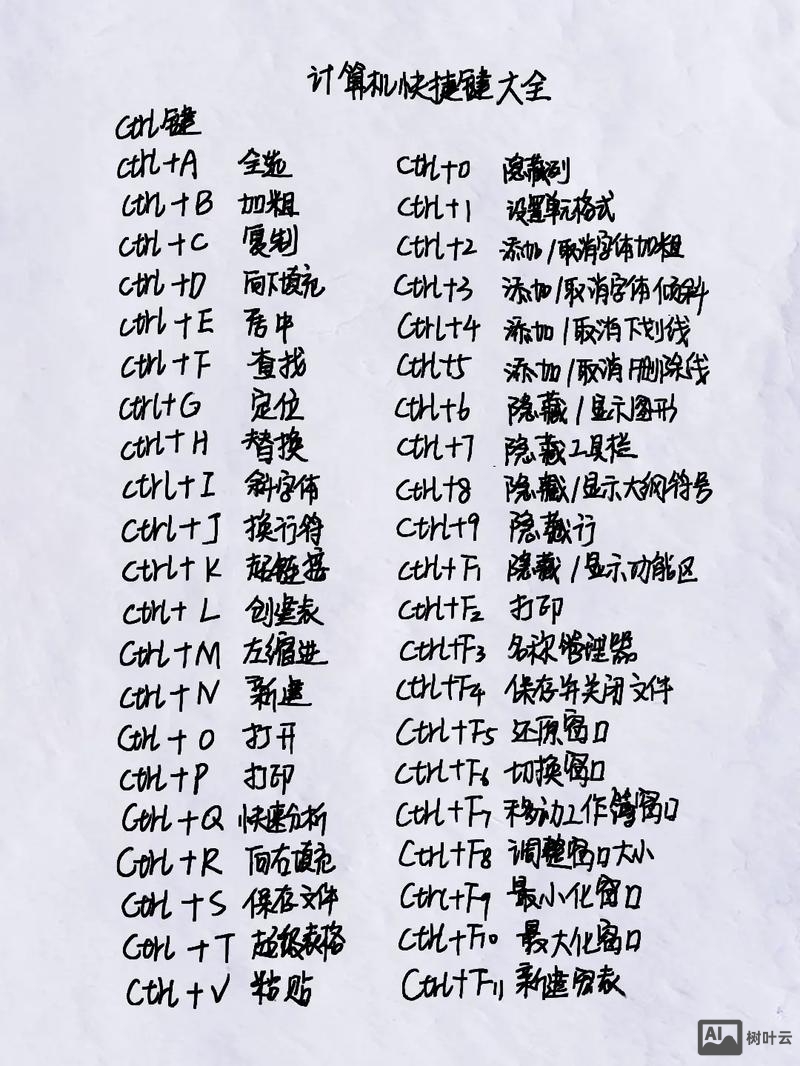 计算机快捷键大全
Ctrl键
Ctrl+A 全选
Ctrl+B 加粗
Ctrl+C 复制
Ctrl+D 向下填充
Ctrl+E 居中
Ctrl+F 查找
Ctrl+G 定位
Ctrl+H 替换
Ctrl+I 斜字体
Ctrl+J 换行符
Ctrl+K 超链接
Ctrl+L 创建表
Ctrl+M 左缩进
Ctrl+N 新建
Ctrl+O 打开
Ctrl+P 打印
Ctrl+Q 快速分析
Ctrl+R 向右填充
Ctrl+S 保存文件
Ctrl+T 超级表格
Ctrl+V 粘贴
Ctrl+0 隐藏列
Ctrl+1 设置单元格式
Ctrl+2 添加/取消字体加粗
Ctrl+3 添加/取消字体倾斜
Ctrl+4 添加/取消下划线
Ctrl+5 添加/取消删除线
Ctrl+6 隐藏/显示图形
Ctrl+7 隐藏工具栏
Ctrl+8 隐藏/显示大纲符号
Ctrl+9 隐藏行
Ctrl+F1 隐藏/显示功能区
Ctrl+F2 打印
Ctrl+F3 名称管理器
Ctrl+F4 保存并关闭文件
Ctrl+F5 还原窗口
Ctrl+F6 切换窗口
Ctrl+F7 移动工作簿窗口
Ctrl+F8 调整窗口大小
Ctrl+F9 最小化窗口
Ctrl+F10 最大化窗口
Ctrl+F11 新建宏表
AI 树叶云